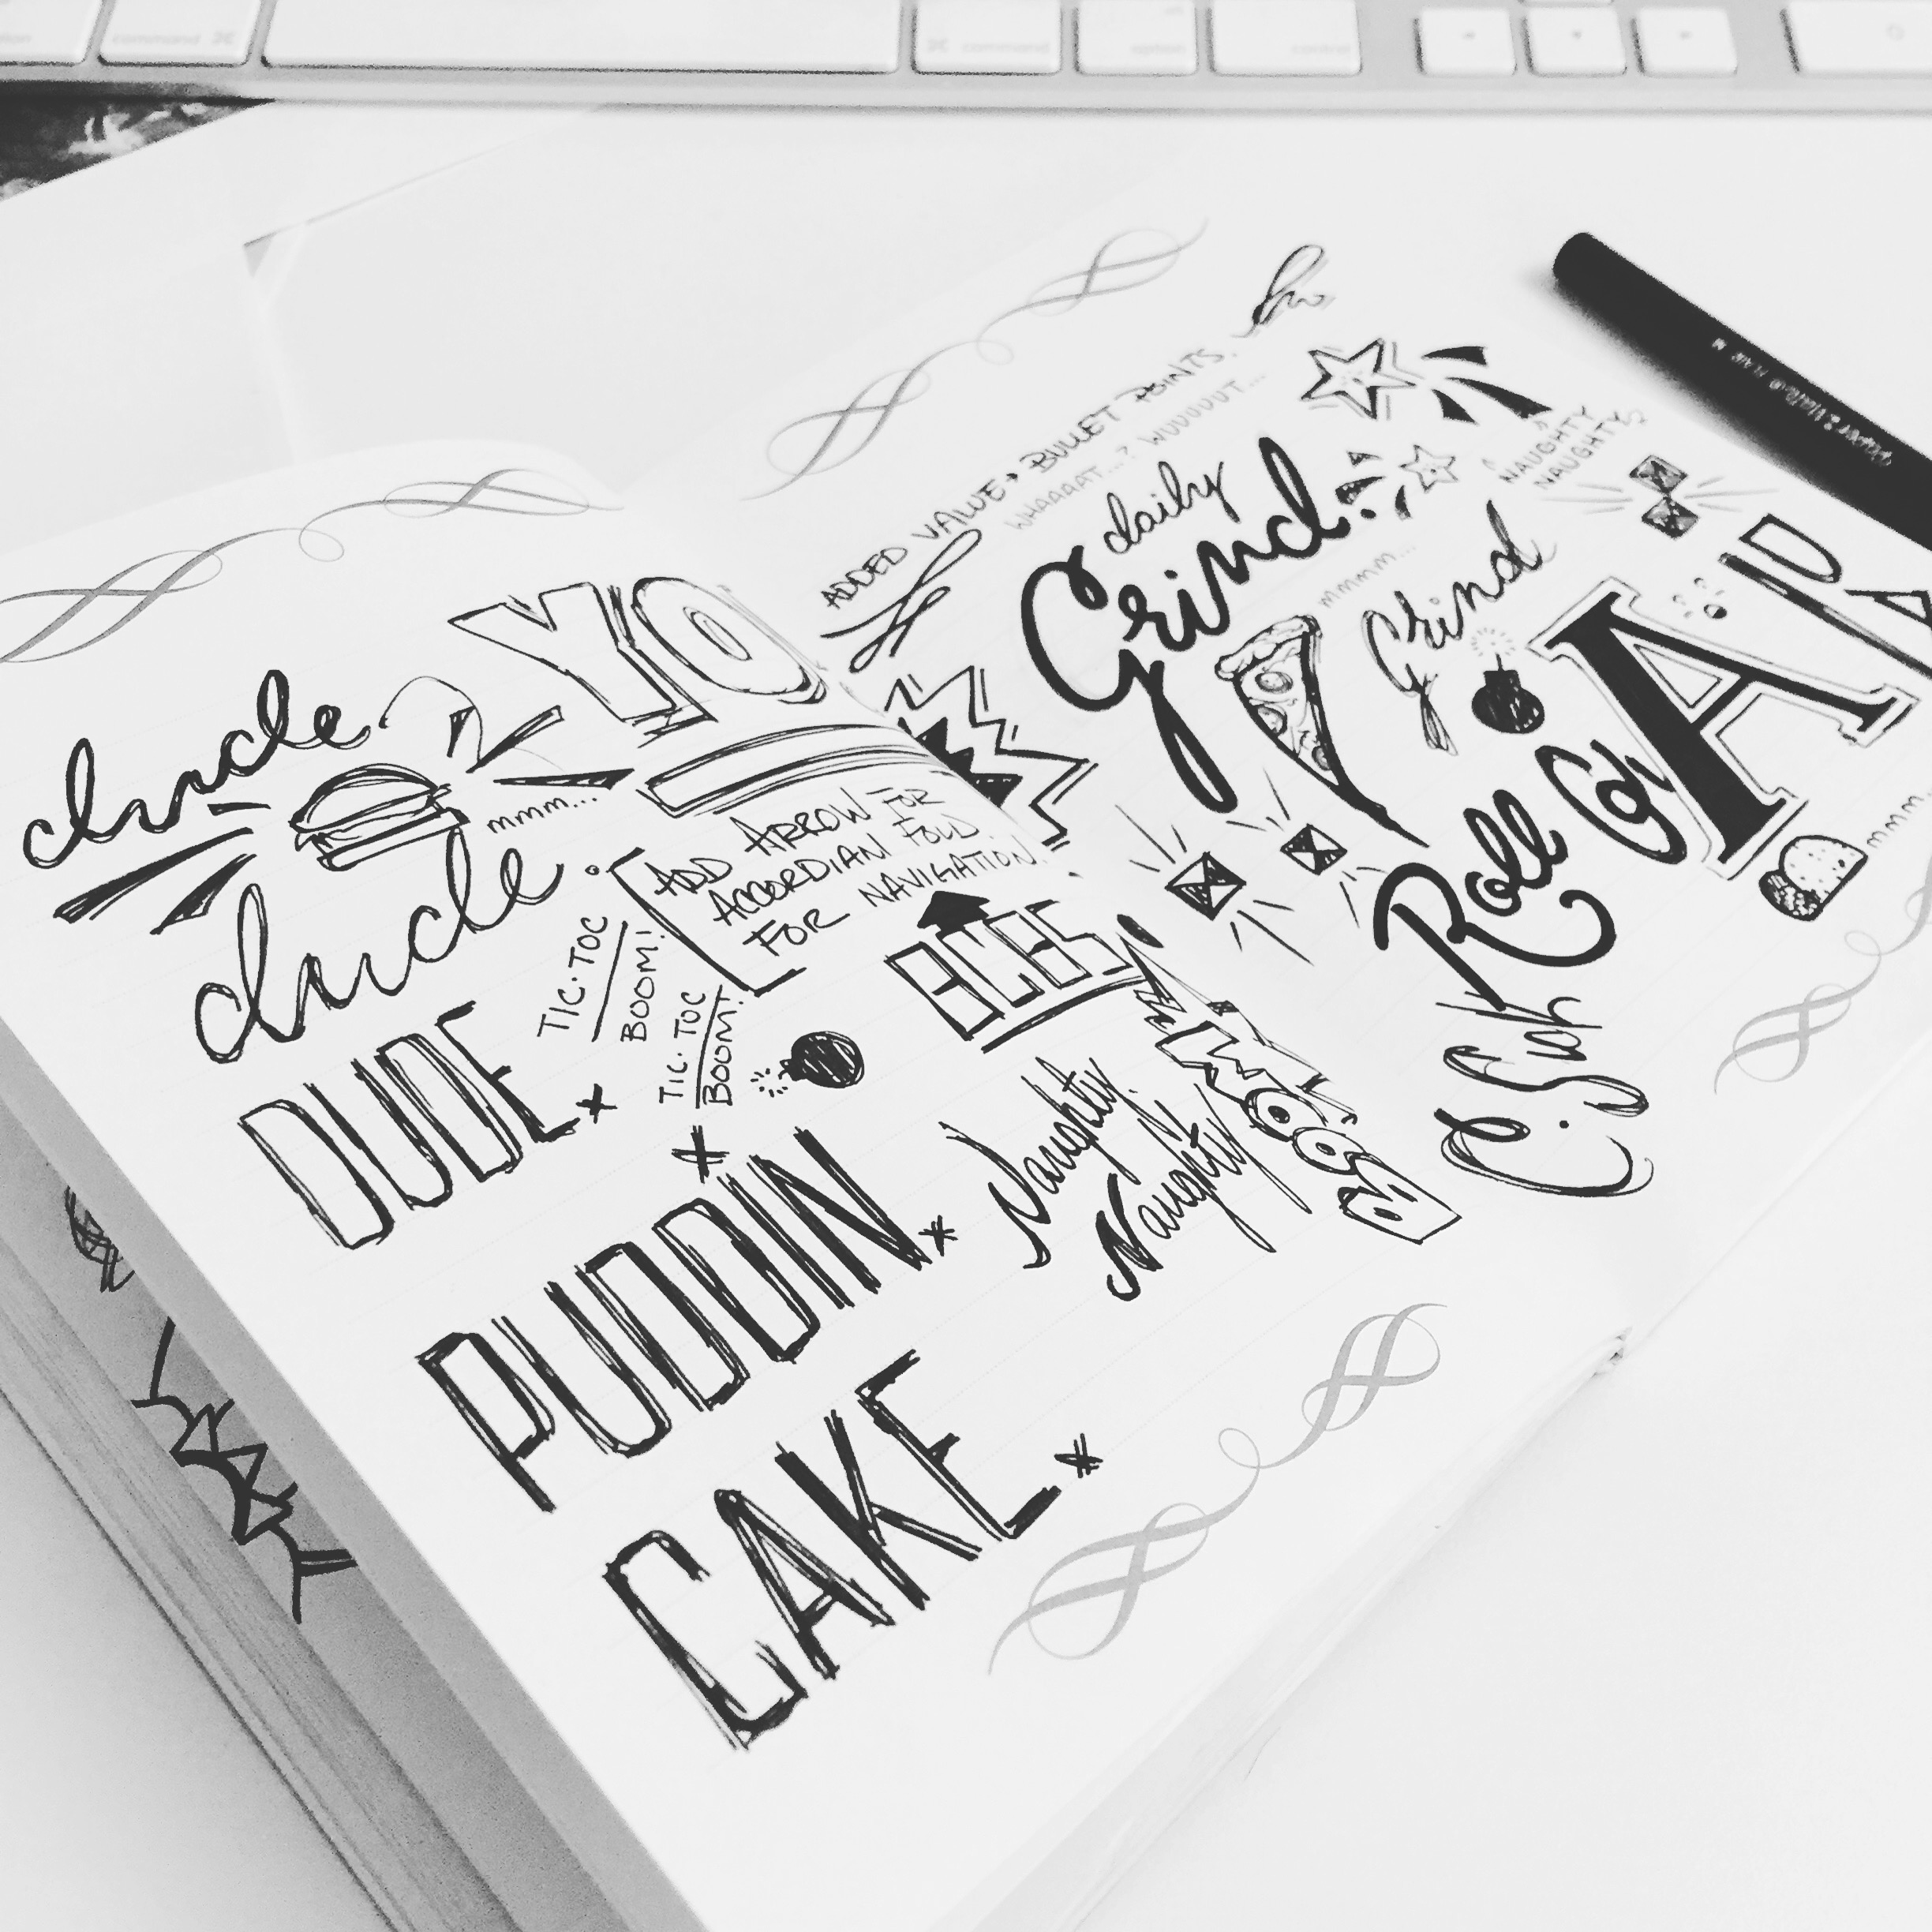 command ⌘
⌘ command
option
control
dude.
YO
mmm...
dude.
ADD ARROW FOR
ACCORDIAN FOLD
FOR NAVIGATION.
TIC·TOC
BOOM!
TIC·TOC
BOOM!
BCBS
DUDE.
PUDDIN.
CAKE.
Naughty.
Naughty.
BOOM
ADDED VALUE → BULLET POINTS.
WHAAAAT...? WUUUUUT...
daily
Grind.
mmmm...
Grind
NAUGHTY
NAUGHTY
A
Roll
mmm.
Paper:Mate® FLAIR M